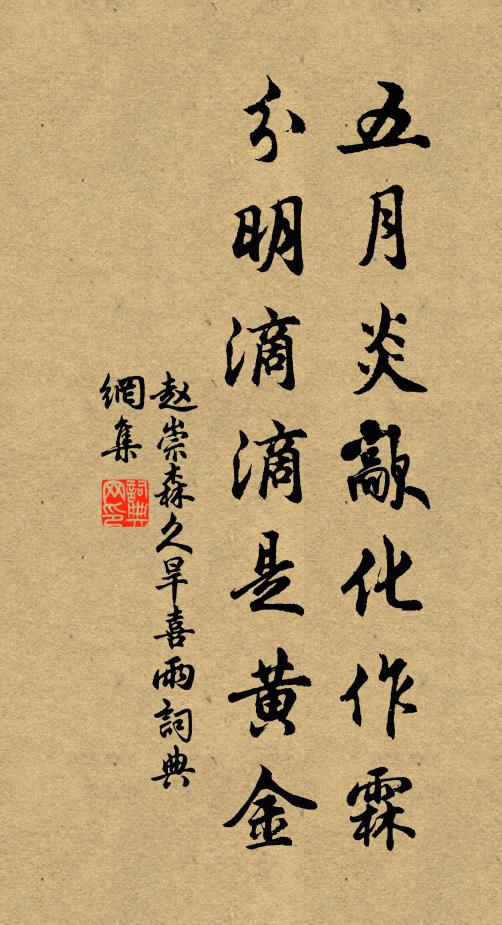 五月炎歊化作霖
分明滴滴是黄金
赵崇森久旱喜雨詞典
網集
詞典
网印